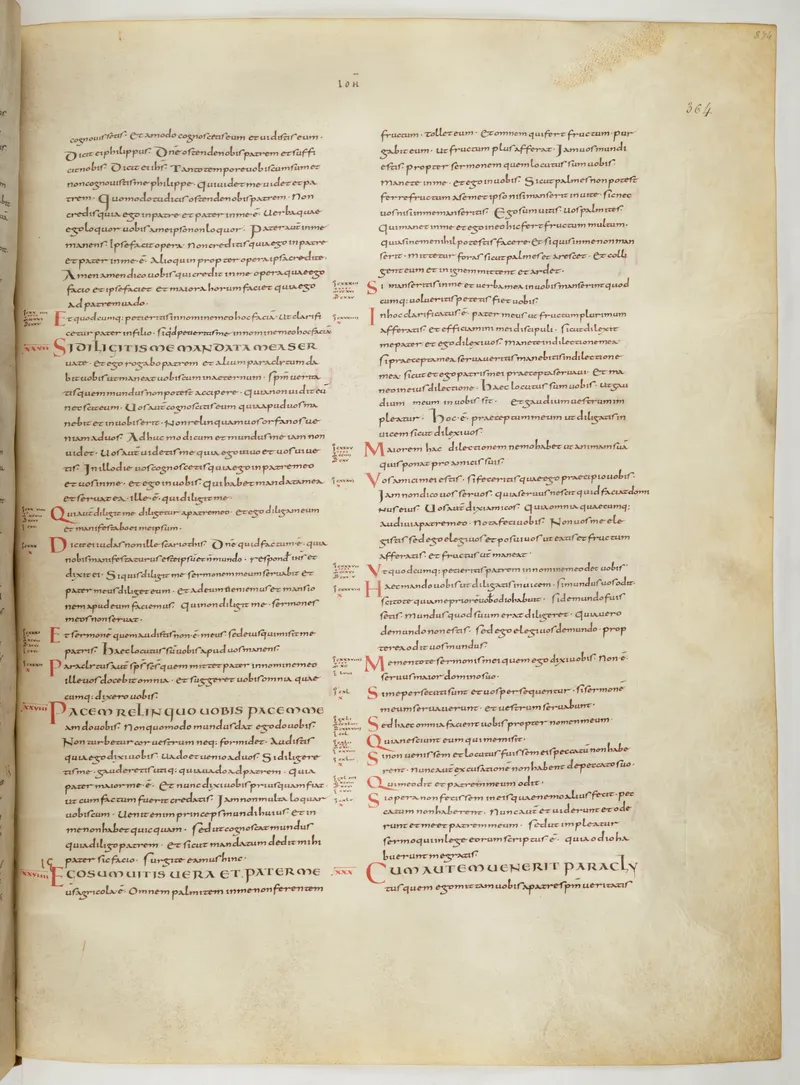 834
IOH
364
cognouissetis· Et amodo cognoscetis eum et uidistis eum·
Dicit ei philippus· Dñe ostende nobis patrem et suffi
cit nobis· Dicit ei ihs· Tanto tempore uobiscum sum et
non cognouistis me philippe· Qui uidet me uidet et pa
trem· Quomodo tu dicis ostende nobis patrem· Non
credis quia ego in patre et pater in me ē· Uerba quae
ego loquor uobis a me ipso non loquor· Pater aut in me
manens· Ipse facit opera· Non creditis quia ego in patre
et pater in me ē· Alioquin propter opera ipsa credite·
Amen amen dico uobis qui credit in me opera quae ego
facio et ipse faciet· et maiora horum faciet quia ego
ad patrem uado·
Et quodcumq; petieritis in nomine meo hoc faciā· Ut clarifi
cetur pater in filio· Si qd petieritis me in nomine meo hoc faciā
XXVII SI DILIGITIS ME MANDATA MEA SER
uate· et ego rogabo patrem et alium paraclitum da
bit uobis ut maneat uobiscum in aeternum· Spm uerita
tis quem mundus non potest accipere· quia non uidit eū
nec scit eum· Uos aut cognoscetis eum quia apud uos ma
nebit et in uobis erit· Non relinquam uos orfanos ue
niam ad uos· Adhuc modicum et mundus me iam non
uidet· Uos aut uidetis me quia ego uiuo et uos uiue
tis· In illo die uos cognoscetis quia ego in patre meo
et uos in me· et ego in uobis· Qui habet mandata mea
et seruat ea· ille ē· qui diligit me·
Qui aut diligit me diligetur a patre meo· Et ego diligam eum
et manifestabo ei me ipsum·
Dicit ei iudas non ille scariothis· Dñe quid factum ē· quia
nobis manifestaturus es te ipsū et n̄ mundo· respond ihs et
dixit ei· Si quis diligit me sermonem meum seruabit et
pater meus diliget eum· Et ad eum ueniemus et mansio
nem apud eum faciemus· Qui non diligit me· sermones
meos non seruat·
Et sermonē quem audistis non ē· meus· Sed eius qui misit me
patris· Haec locutus sū uobis apud uos manens·
Paraclitus aut sps scs quem mittet pater in nomine meo
ille uos docebit omnia· et suggeret uobis omnia quae
cumq; dixero uobis·
XXVIII PACEM RELINQUO UOBIS PACEM ME
am do uobis· Non quomodo mundus dat ego do uobis·
Non turbetur cor uestrum neq; formidet· Audistis
quia ego dixi uobis· Uado et uenio ad uos· Si diligere
tis me· gauderetis utiq; quia uado ad patrem· quia
pater maior me ē· Et nunc dixi uobis priusquam fiat·
ut cum factum fuerit credatis· Iam non multa loquar
uobiscum· Uenit enim princeps mundi huius· et in
me non habet quicquam· sed ut cognoscat mundus
quia diligo patrem· et sicut mandatum dedit mihi
pater sic facio· Surgite eamus hinc·
XXVIIII EGO SUM UITIS UERA ET PATER ME
us agricola ē· Omnem palmitem in me non ferentem
fructum· tollet eum· Et omnem qui fert fructum· pur
gabit eum· ut fructum plus afferat· Iam uos mundi
estis· propter sermonem quem locutus sum uobis·
Manete in me· et ego in uobis· Sicut palmes non potest
ferre fructum a semet ipso nisi manserit in uite· sic nec
uos nisi in me manseritis· Ego sum uitis· Uos palmites·
Qui manet in me et ego in eo hic fert fructum multum·
quia sine me nihil potestis facere· Et si quis in me non man
serit· mittetur foras sicut palmes et arescet· et colli
gent eum et in ignem mittent et ardet·
Si manseritis in me et uerba mea in uobis manserint quod
cumq; uolueritis petetis et fiet uobis·
In hoc clarificatus ē· pater meus ut fructum plurimum
afferatis· et efficiamini mei discipuli· sicut dilexit
me pater· et ego dilexi uos· Manete in dilectione mea·
si praecepta mea seruaueritis manebitis in dilectione
mea· sicut et ego patris mei praecepta seruaui· Et ma
neo in eius dilectione· Haec locutus sum uobis· ut gau
dium meum in uobis sit· et gaudium uestrum im
pleatur· Hoc ē· praeceptum meum ut diligatis in
uicem sicut dilexi uos·
Maiorem hac dilectionem nemo habet ut animam suā
quis ponat pro amicis suis·
Vos amici mei estis· si feceritis quae ego praecipio uobis·
Iam non dico uos seruos· quia seruus nescit quid faciat dom
nus eius· Uos aut dixi amicos· Quia omnia quaecumq;
audiui a patre meo· nota feci uobis· Non uos me ele
gistis sed ego elegi uos et posui uos ut eatis et fructum
afferatis· et fructus ut maneat·
Vt quodcumq; petieritis patrem in nomine meo det uobis·
Haec mando uobis ut diligatis inuicem· Si mundus uos odit·
scitote quia me priorē uobis odio habuit· Si de mundo fuis
setis· Mundus quod suum erat diligeret· Quia uero
de mundo non estis· sed ego elegi uos de mundo· prop
terea odit uos mundus·
Mementote sermonis mei quem ego dixi uobis· Non ē·
seruus maior domino suo·
Si me persecuti sunt et uos persequentur· Si sermonē
meum seruauerunt· et uestrum seruabunt·
Sed haec omnia facient uobis propter nomen meum·
Quia nesciunt eum qui me misit·
Si non uenissem et locutus fuissem eis peccatū non habe
rent· nunc aut excusationē non habent de peccato suo·
Qui me odit et patrem meum odit·
Si opera non fecissem in eis quae nemo alius fecit· pec
catum non haberent· Nunc aut et uiderunt et ode
runt et me et patrem meum· sed ut impleatur
sermo qui in lege eorum scriptus ē· quia odio ha
buerunt me gratis·
XXX CUM AUTEM UENERIT PARACLY
tus quem ego mittam uobis a patre spm ueritatis